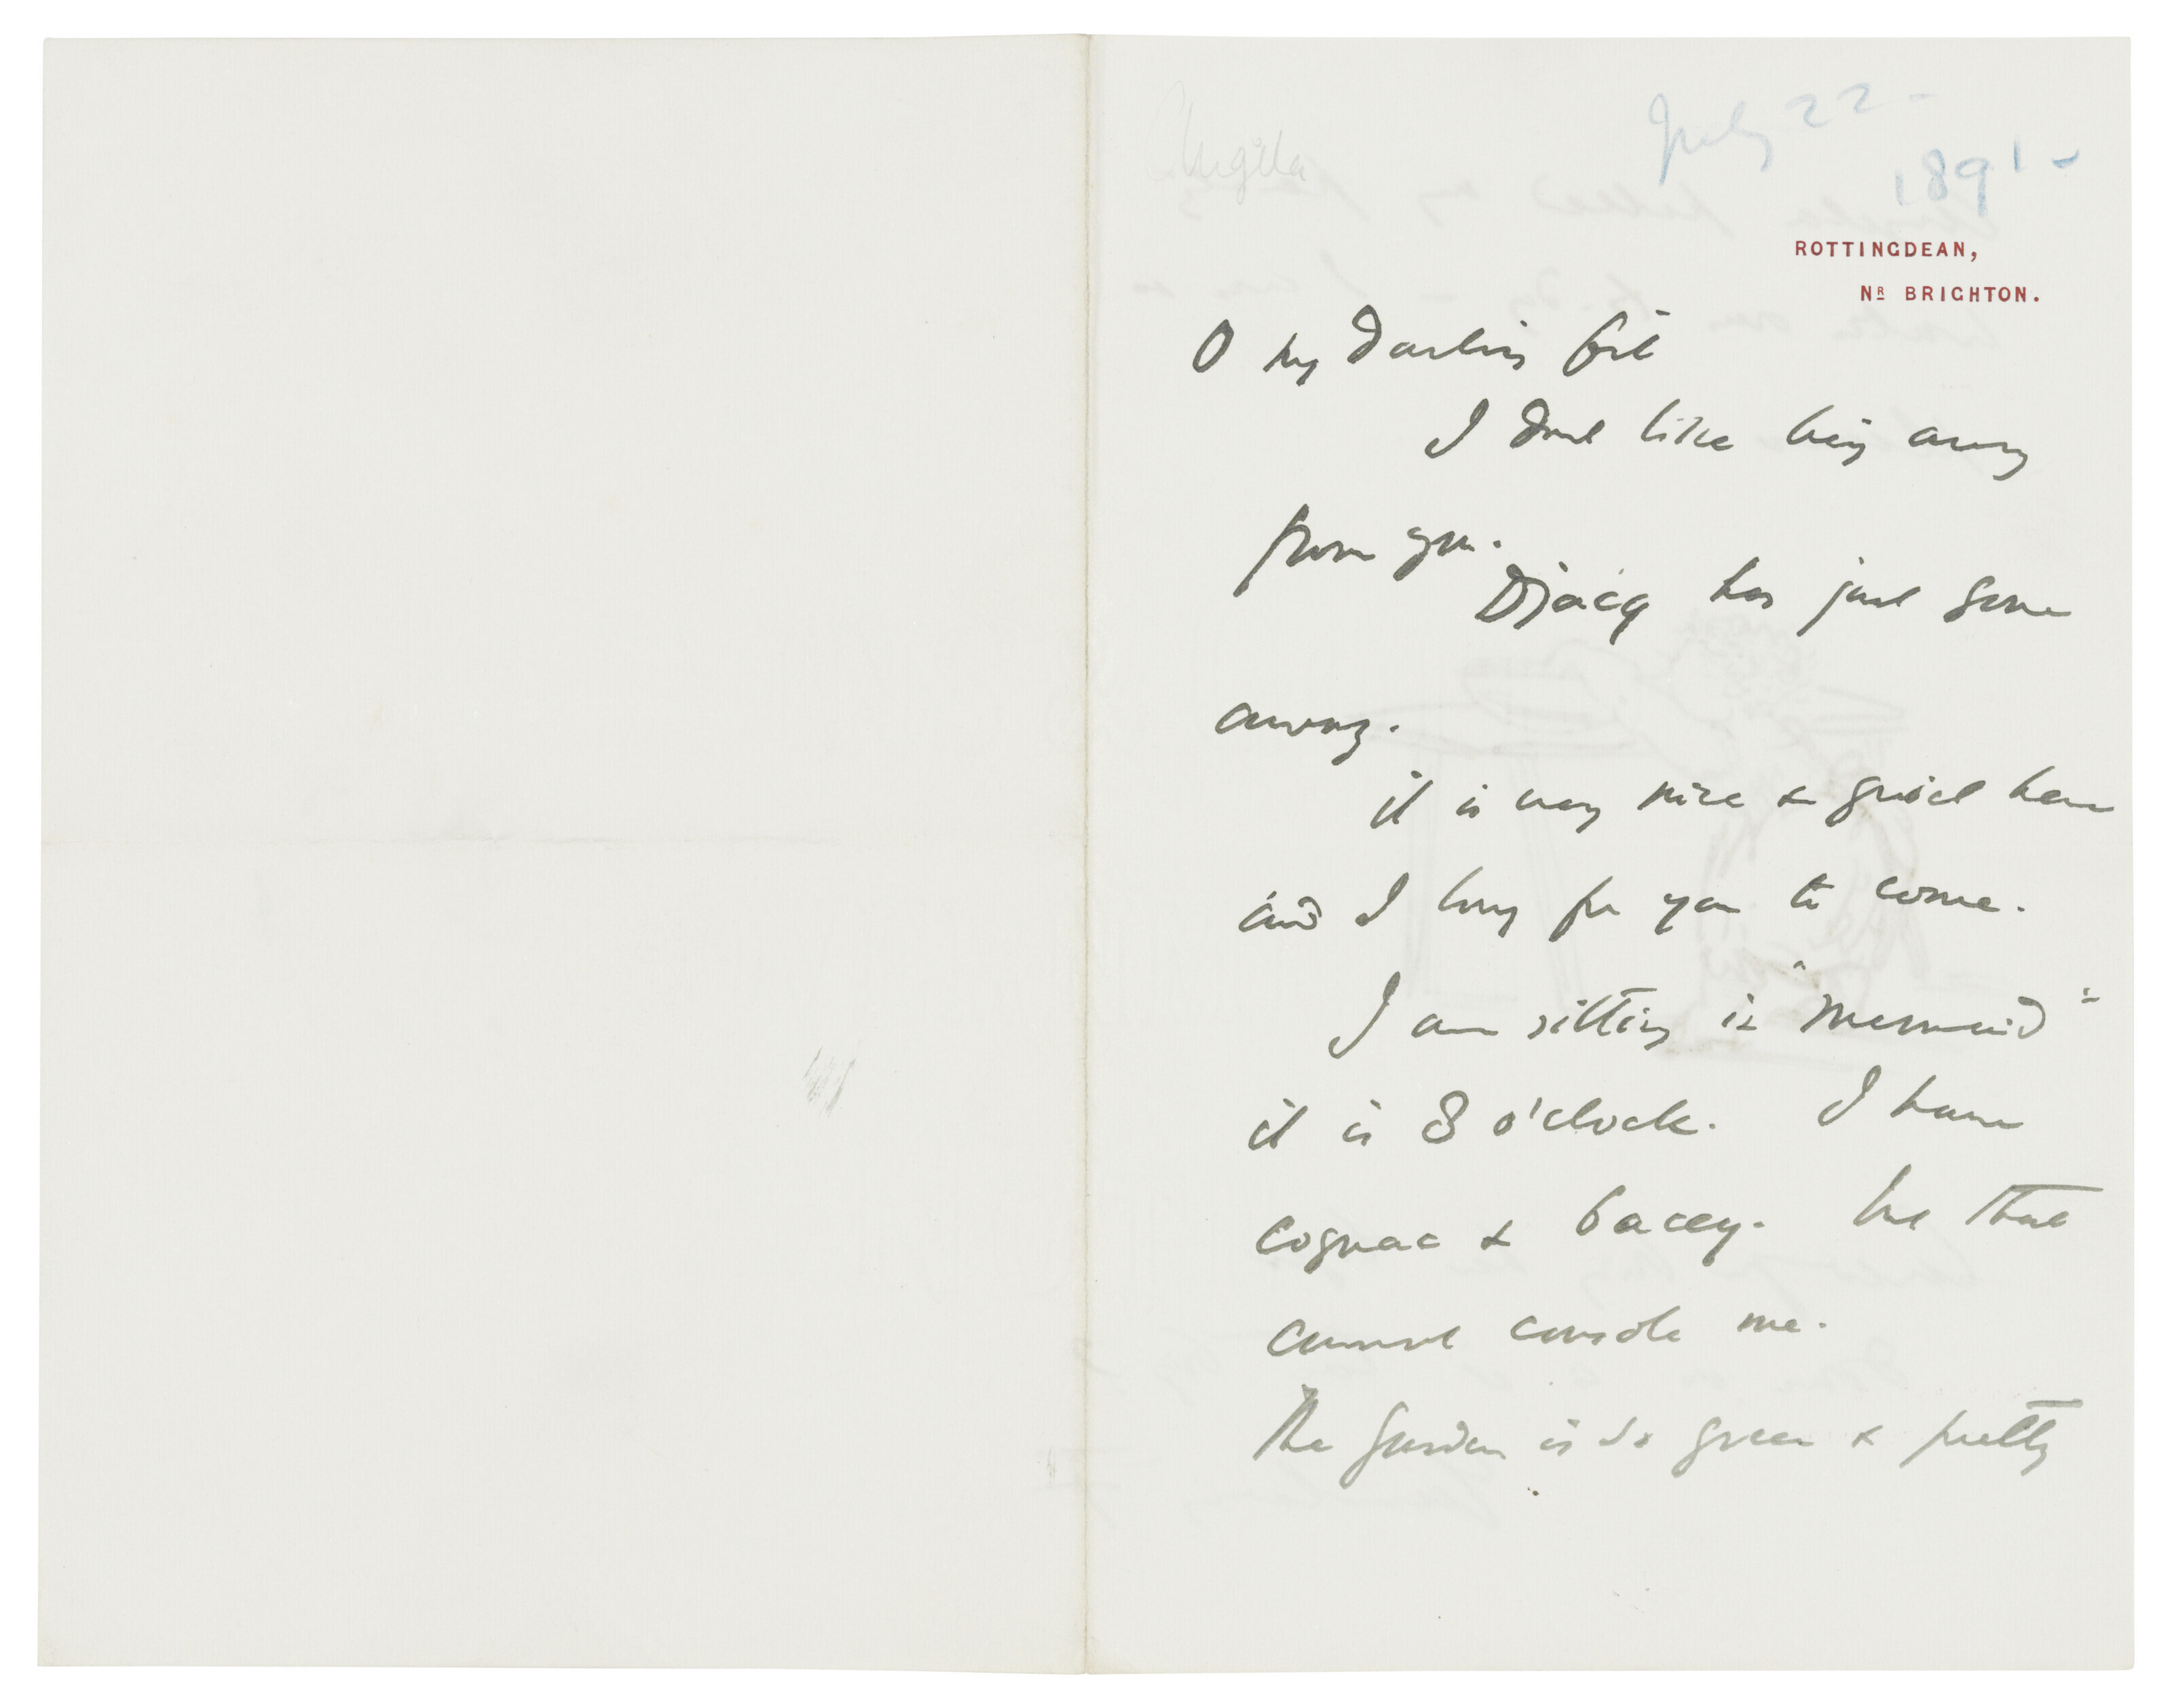 Angela
July 22 -
1891 -
ROTTINGDEAN,
Nᴿ BRIGHTON.
O my darling
I dont like being away
from you.
has just gone
away.
it is very nice & quiet here
and I long for you to come.
I am sitting in "Mermaid"
it is 8 o'clock. I have
cognac & baccy. but that
cannot console me.
The garden is so green & pretty